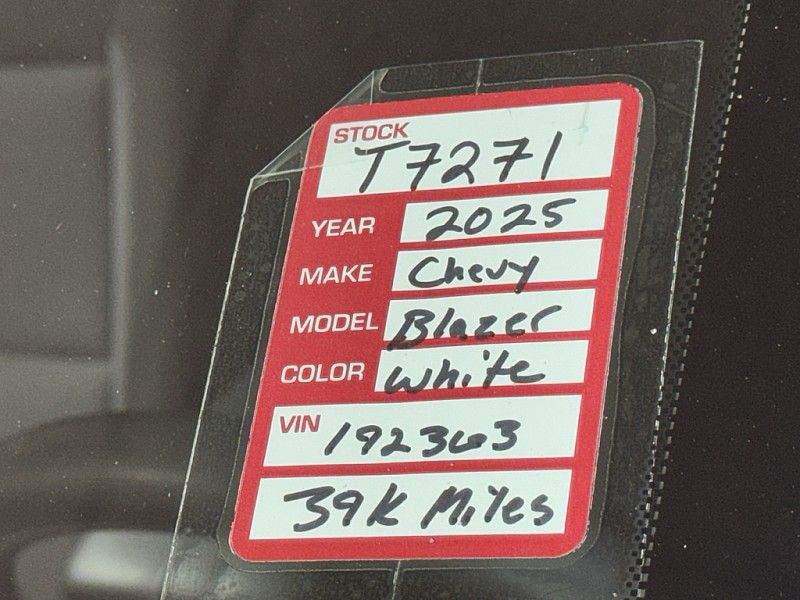 STOCK
T7271
YEAR 2025
MAKE Chevy
MODEL Blazer
COLOR white
VIN 192363
39K Miles